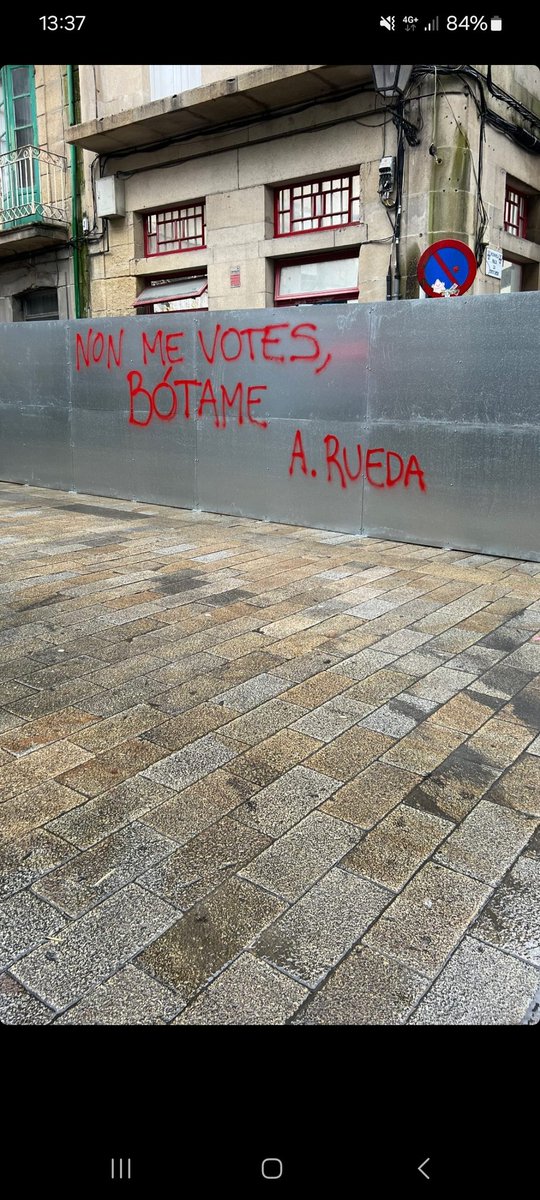 13:37
4G+
84%
NON ME VOTES,
BÓTAME
A. RUEDA